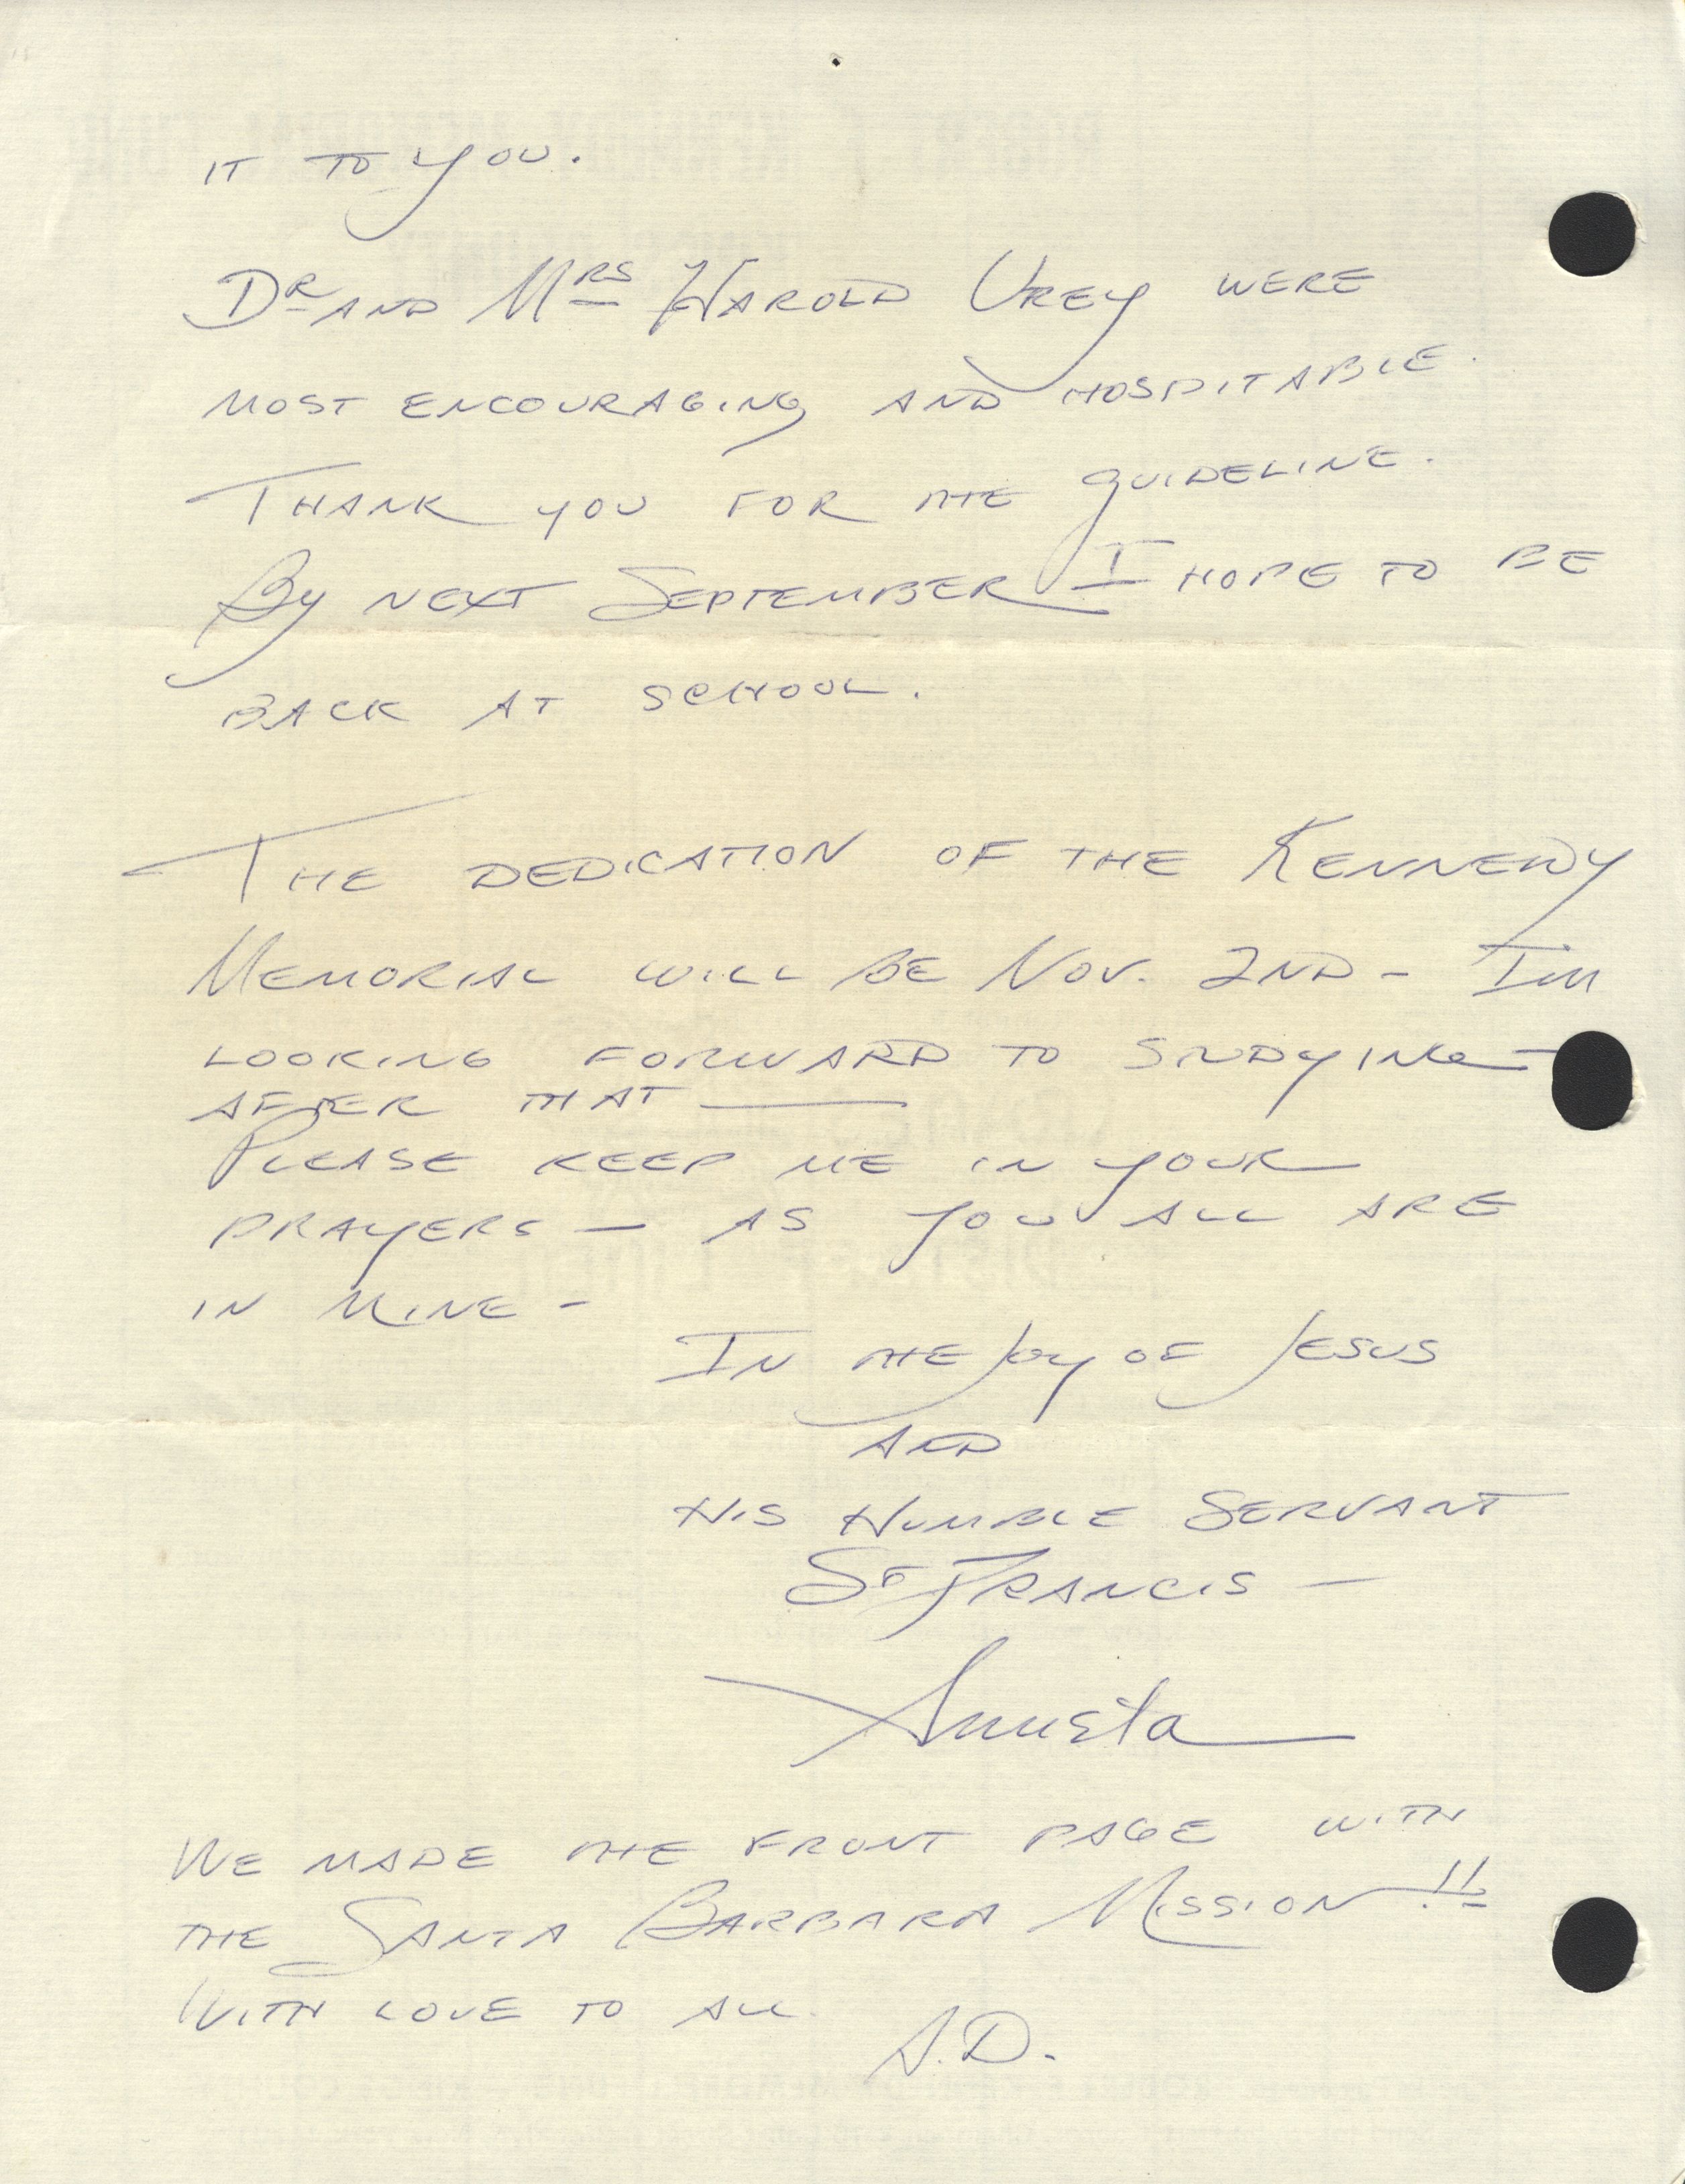 IT TO YOU.
DR AND MRS HAROLD UREY WERE
MOST ENCOURAGING AND HOSPITABLE.
THANK YOU FOR THE GUIDELINE.
BY NEXT SEPTEMBER I HOPE TO BE
BACK AT SCHOOL.
THE DEDICATION OF THE KENNEDY
MEMORIAL WILL BE NOV. 2ND - IM
LOOKING FORWARD TO STUDYING
AFTER THAT —
PLEASE KEEP ME IN YOUR
PRAYERS — AS YOU ALL ARE
IN MINE -
IN THE JOY OF JESUS
AND
HIS HUMBLE SERVANT
ST FRANCIS —
WE MADE THE FRONT PAGE WITH
THE SANTA BARBARA MISSION !!
WITH LOVE TO ALL.
A.D.